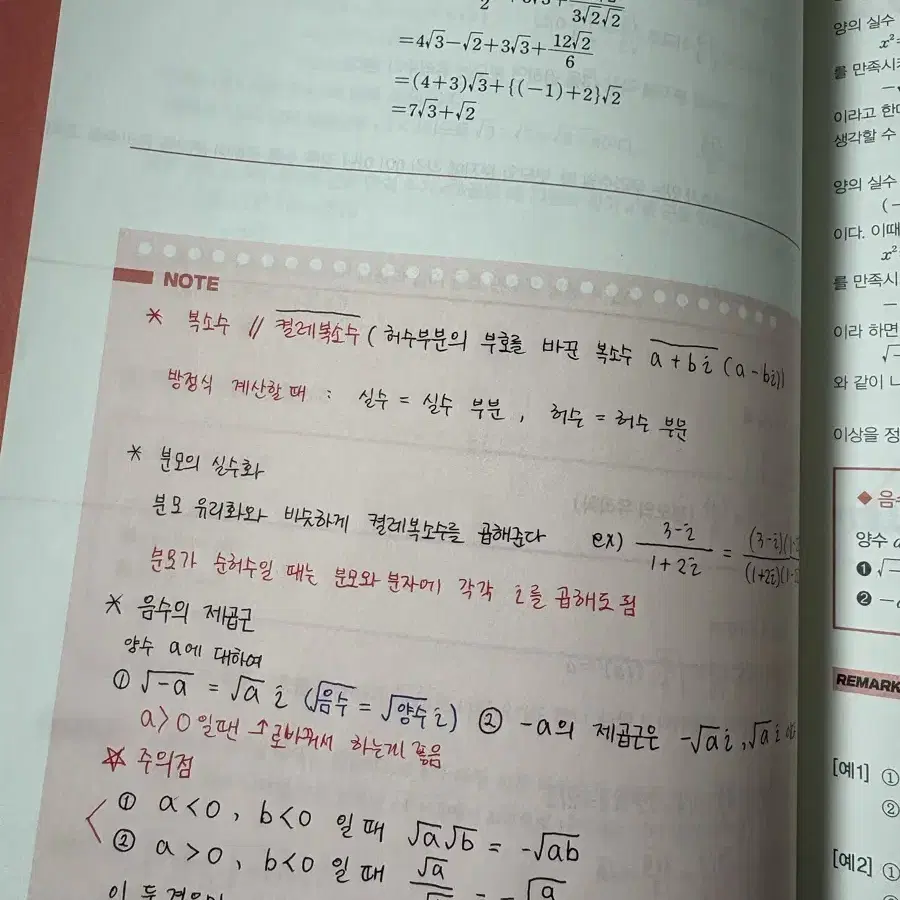 3√2√2
=4√3-√2+3√3+12√2/6
=(4+3)√3+{(-1)+2}√2
=7√3+√2
NOTE
* 복소수 // 켤레복소수 (허수부분의 부호를 바꾼 복소수 a+bi (a-bi))
방정식 계산할때 : 실수 = 실수 부분, 허수 = 허수 부분
* 분모의 실수화
분모 유리화와 비슷하게 켤레복소수를 곱해준다 ex) 3-i/1+2i = (3-i)(1-/(1+2i)(1-
분모가 순허수일 때는 분모와 분자에 각각 i를 곱해도 됨
* 음수의 제곱근
양수 a에 대하여
① √-a = √a i (√음수 = √양수 i) ② -a의 제곱근은 -√a i, √a i
a>0일땐 ↑로바꿔서 하는게 좋음
☆ 주의점
① a<0, b<0 일때 √a√b = -√ab
② a>0, b<0 일때 √a/√ = -√a
이 두
양의 실수
x²=
를 만족시
이라고 한
생각할 수
양의 실수
(-
이다. 이때
x²
를 만족시
이라 하면
√-
와 같이 나
이상을 정
◆ 음수
양수 a
❶ √-
❷ -a
REMARK
[예1] ①
②
[예2] ①